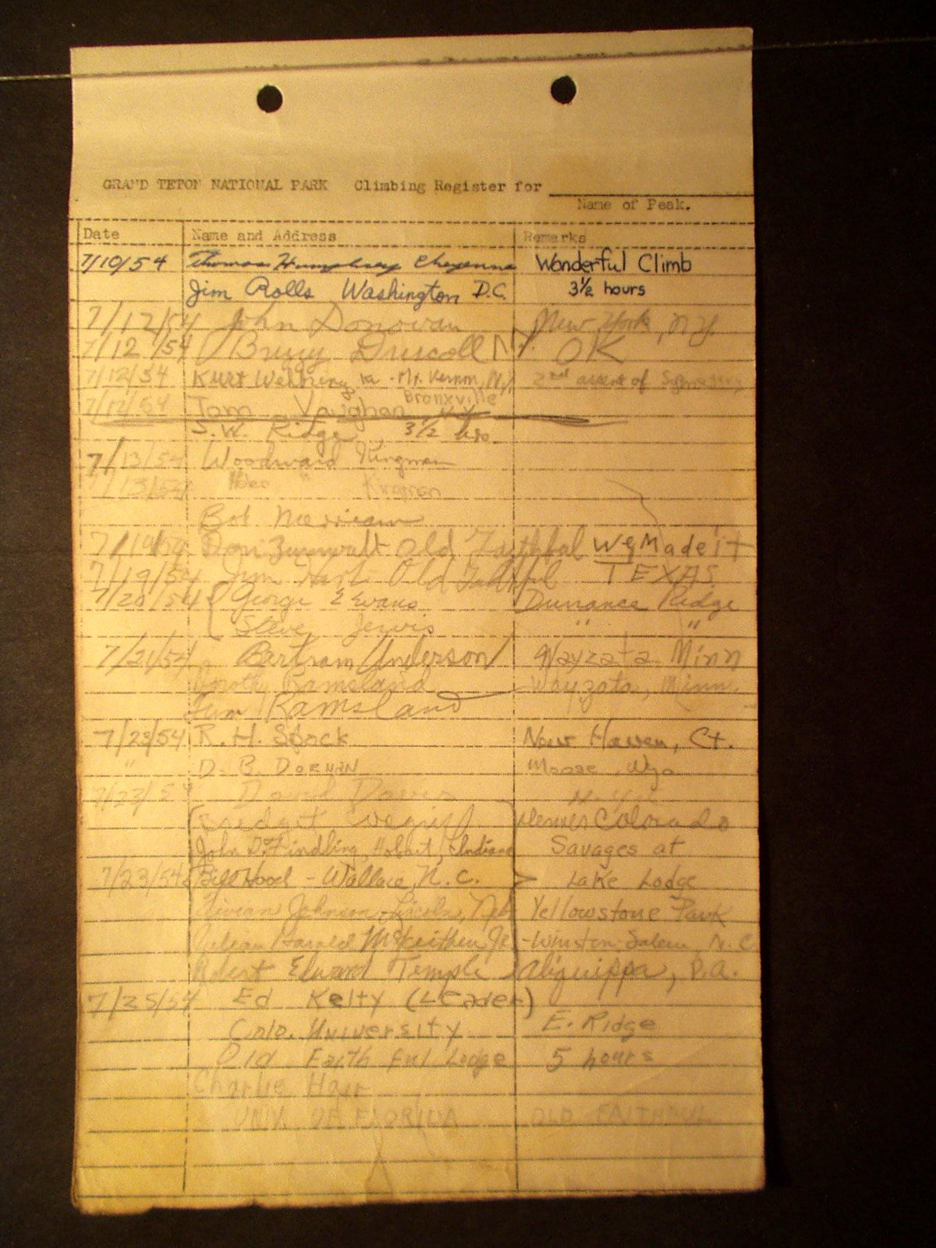 GRAND TETON NATIONAL PARK Climbing Register for
Name of Peak.
Date Name and Address Remarks
7/10/54 Thomas Humphrey Cheyenne Wonderful Climb
Jim Rolls Washington D.C. 3½ hours
7/12/54 John Donovan New York, NY.
7/12/54 Driscoll N.Y. OK
7/12/54 Kurt Mt. Vernon, N.Y. 2nd ascent of
7/12/54 Tom Vaughan Bronxville N.Y.
S.W. Ridge 3½ hrs.
7/13/54 Woodward Kingman
7/13/54 " Kingman
Bob Merriam
7/19/54 Don Zumwalt Old Faithful We Made it
7/19/54 Jim Hart Old Faithful TEXAS
7/20/54 George Evans Durrance Ridge
Steve Jervis " "
7/21/54 Bertram Anderson Wayzata Minn
Ramsland Wayzata, Minn.
Ramsland
7/23/54 R. H. Stock New Haven, Ct.
" D. B. Dornan Moose, Wyo
David
Denver Colorado
John D. Findling, Hobart, Indiana Savages at
7/23/54 Bill Hood - Wallace, N.C. > Lake Lodge
Vivian Johnson, Lincoln, Neb Yellowstone Park
Harold McKeithen Jr. - Winston-Salem, N.C.
Robert Edward Temple Aliquippa, P.A.
7/25/54 Ed Kelty (Leader)
Colo. University E. Ridge
Old Faithful Lodge 5 hours
Charlie Hair
UNIV. OF FLORIDA OLD FAITHFUL